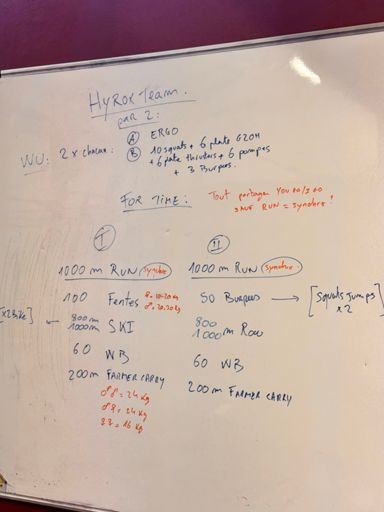 HYROX TEAM.
par 2:
WU: 2 x chacun:
Ⓐ ERGO
Ⓑ 10 squats + 6 plate G2OH
+ 6 plate thrusters + 6 pompes
+ 3 Burpees.
FOR TIME:
Tout partage YOU GO/I GO
SAUF RUN = synchro!
I
1000 m RUN synchro
100 Fentes
[x2 Bike] ← 800m
1000m SKI
60 WB
200m FARMER CARRY
♂♂ = 24 kg
♂♀ = 24 kg
♀♀ = 16 kg
II
1000 m RUN synchro
50 Burpees → [Squats Jumps
x2]
800
1000m Row
60 WB
200m FARMER CARRY